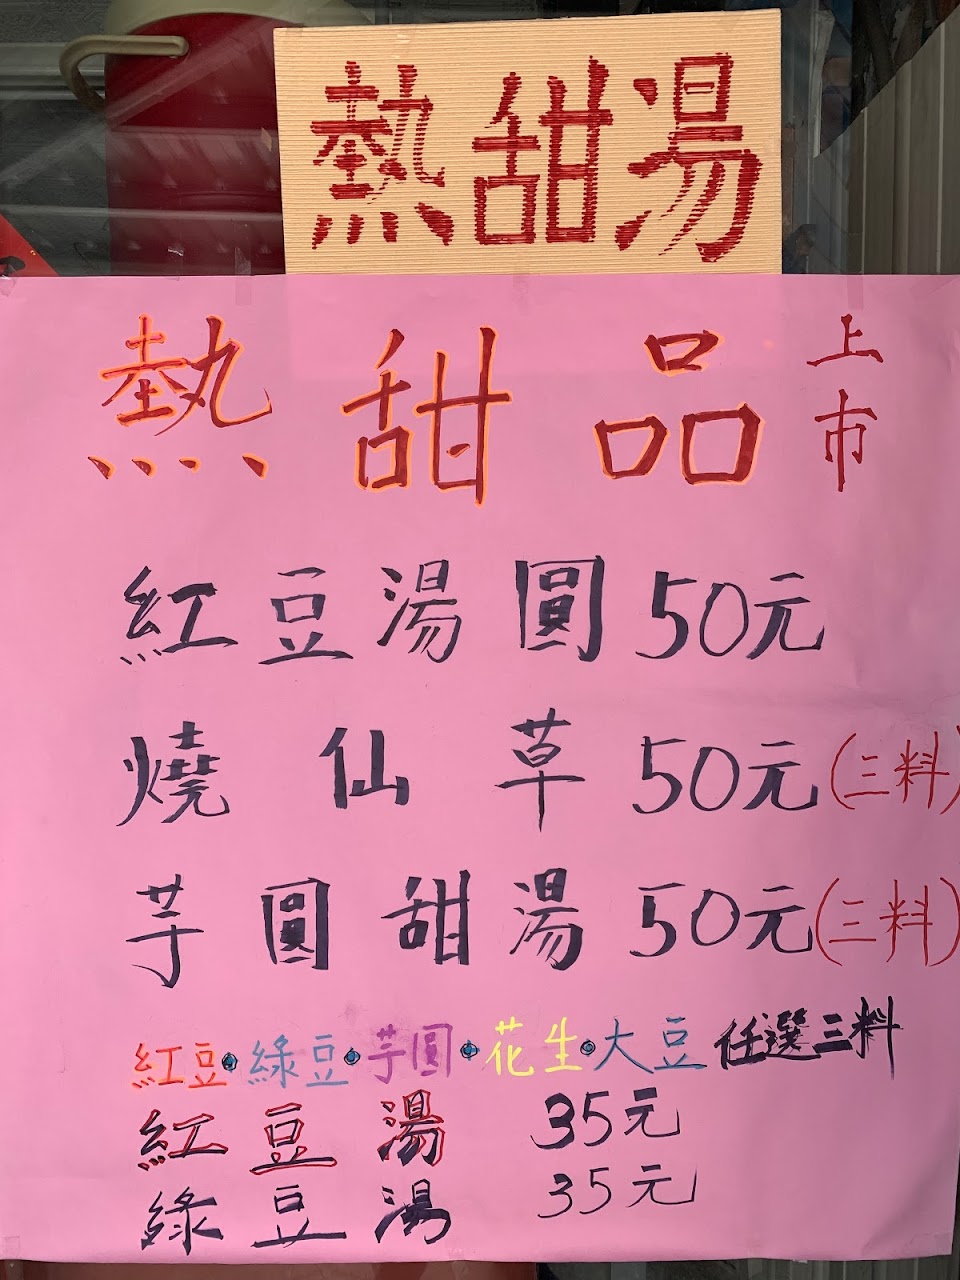 熱甜湯
熱甜品上市
紅豆湯圓50元
燒仙草50元(三料)
芋圓甜湯50元(三料)
紅豆•綠豆•芋圓•花生•大豆任選三料
紅豆湯 35元
綠豆湯 35元